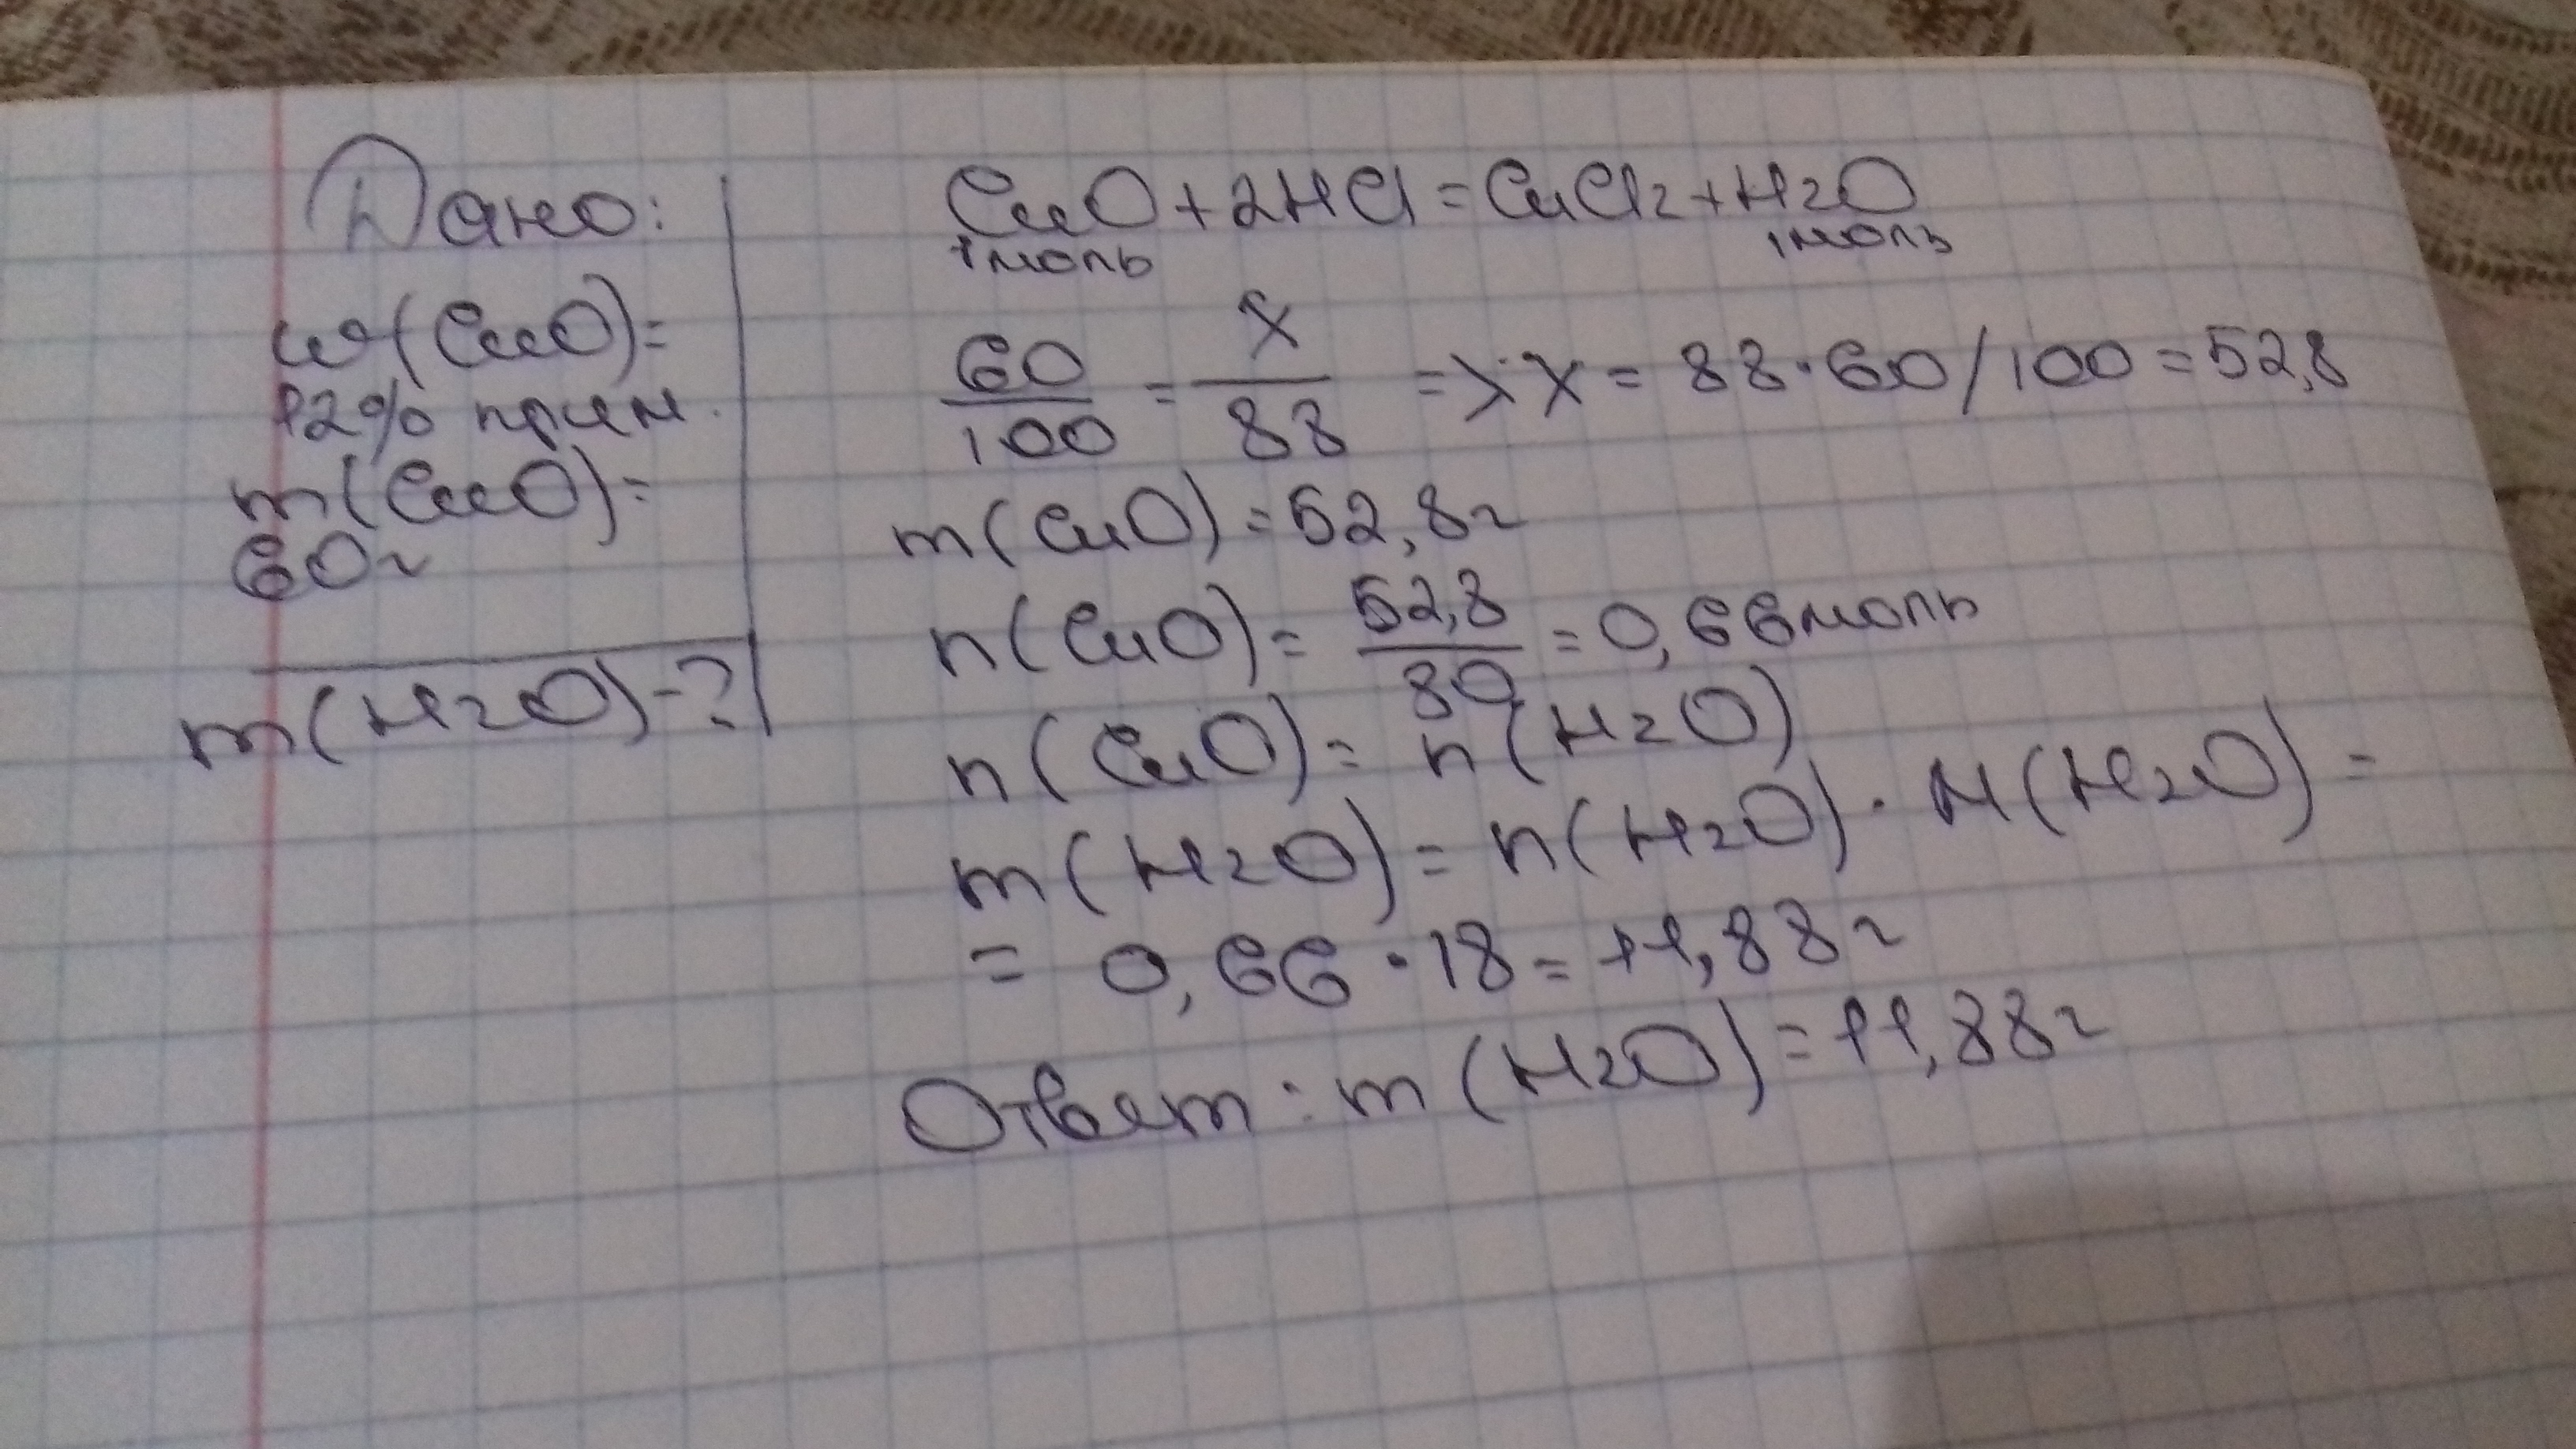 Дано:
w(CuO)=
12% прим.
m(CuO)=
60г
m(H2O)-?
CuO+2HCl=CuCl2+H2O
1моль 1моль
60/100 = x/88 => x = 88·60/100=52,8
m(CuO)=52,8г
n(CuO)= 52,8/80 =0,66моль
n(CuO)= n(H2O)
m(H2O)= n(H2O)·M(H2O)=
= 0,66·18=11,88г
Ответ: m(H2O)=11,88г